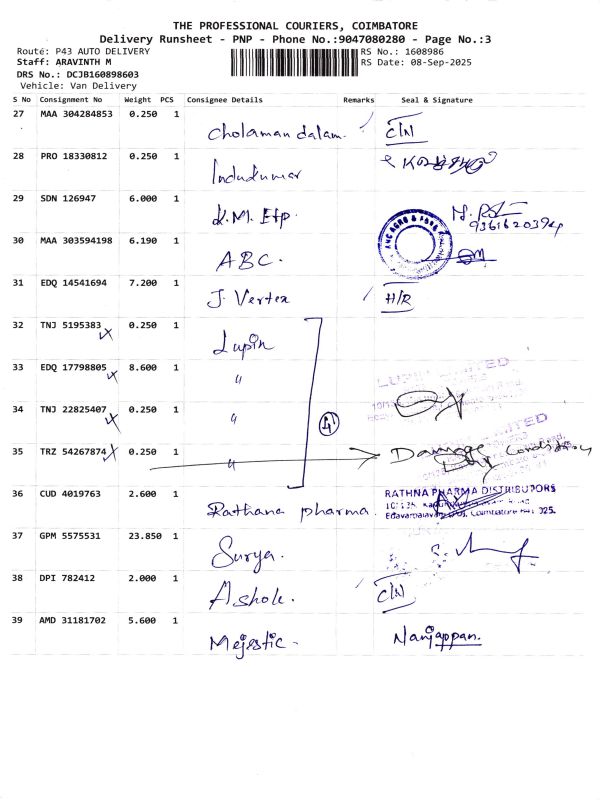 THE PROFESSIONAL COURIERS, COIMBATORE
Delivery Runsheet - PNP - Phone No.:9047080280 - Page No.:3
Route: P43 AUTO DELIVERY RS No.: 1608986
Staff: ARAVINTH M RS Date: 08-Sep-2025
DRS No.: DCJB160898603
Vehicle: Van Delivery
S No Consignment No Weight PCS Consignee Details Remarks Seal & Signature
27 MAA 304284853 0.250 1 Cholamandalam. C/N
28 PRO 18330812 0.250 1 Indukumar
29 SDN 126947 6.000 1 K.M. Etp.
9361620394
30 MAA 303594198 6.190 1 ABC.
31 EDQ 14541694 7.200 1 J. Vertex H/R
32 TNJ 5195383 0.250 1 Lupin
33 EDQ 17798805 8.600 1 "
LUPIN LIMITED
34 TNJ 22825407 0.250 1 " 4
LIMITED
35 TRZ 54267874 0.250 1 " Damage Condition
36 CUD 4019763 2.600 1 Rathana pharma.
RATHNA PHARMA DISTRIBUTORS
37 GPM 5575531 23.850 1 Surya.
38 DPI 782412 2.000 1 Ashok. C/N
39 AMD 31181702 5.600 1 Mejestic - Nanjappan.